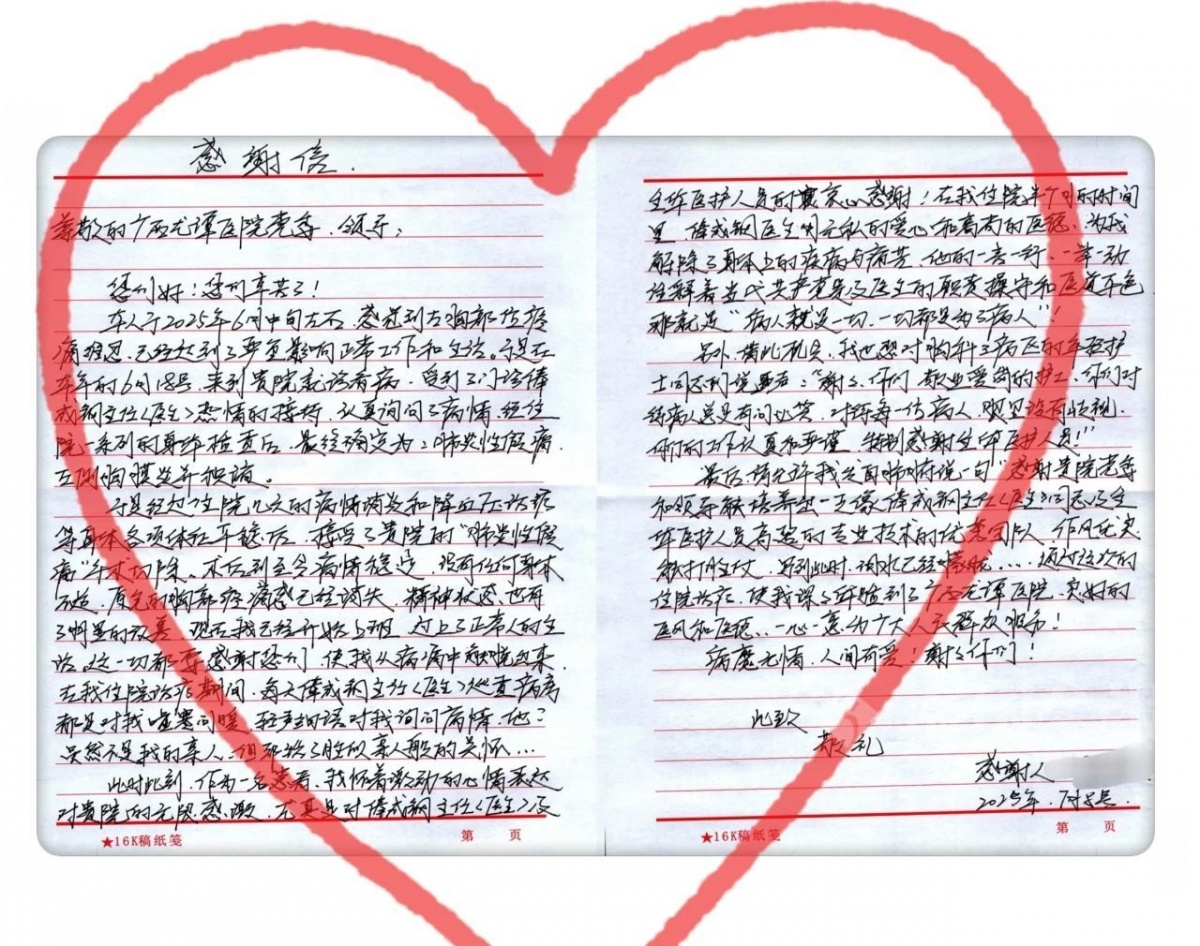 感谢信.
尊敬的广西龙潭医院党委、领导:
您们好!您们辛苦了!
本人于2025年6月中旬左右,感觉到左胸部位疼
痛难忍,已经达到了严重影响正常工作和生活。于是在
本年的6月18号,来到贵院就诊看病,受到了门诊
主任<医生>热情的接待,认真询问了病情,经住
院一系列的身体检查后,最终确定为:肺炎性假瘤、
左侧胸膜炎并积液。
于是经过住院几天的病情消炎和降血压治疗
等身体各项体征平稳后,接受了贵院的"肺炎性假
瘤"手术切除。术后到至今病情稳定,没有任何身体
不适,原先的胸部疼痛感已经消失,精神状态也有
了明显的改善,现在我已经开始上班,过上了正常人的生
活,这一切都要感谢您们,使我从病痛中解脱出来。
在我住院治疗期间,每天主任<医生>巡查病房
都是对我嘘寒问暖,轻声细语对我询问病情,他:
虽然不是我的亲人,但却给了胜似亲人般的关怀...
此时此刻,作为一名患者,我怀着激动的心情表达
对贵院的无限感激,尤其是对主任<医生>及
全体医护人员的衷心感谢!在我住院半个月的时间
里,医生用无私的爱心和高尚的医德,为我
解除了身体上的疾病与痛苦,他的一言一行、一举一动
诠释着当代共产党员及医生的职责操守和医道本色
那就是"病人就是一切,一切都是为了病人"!
另外,借此机会,我也想对胸科三病区的年轻护
士同志们说声:"谢谢你们,敬业爱岗的护士,你们对
待病人总是有问必答,对待每一位病人,眼里没有歧视,
你们的工作认真和严谨,特别感谢全体医护人员!"
最后,请允许我发自肺腑说一句"感谢贵院党委
和领导能培养出一支像主任<医生>同志及全
体医护人员高强的专业技术的优秀团队,作风优良
能打胜仗,写到此时,泪水已经朦胧....通过这次的
住院治疗,使我深深体验到了广西龙潭医院,良好的
医风和医德...一心一意为广大人民群众服务!
病魔无情,人间有爱!谢谢你们!
此致
敬礼
感谢人
2025年.7月8号.
★16K稿纸笺 第 页
★16K稿纸笺 第 页